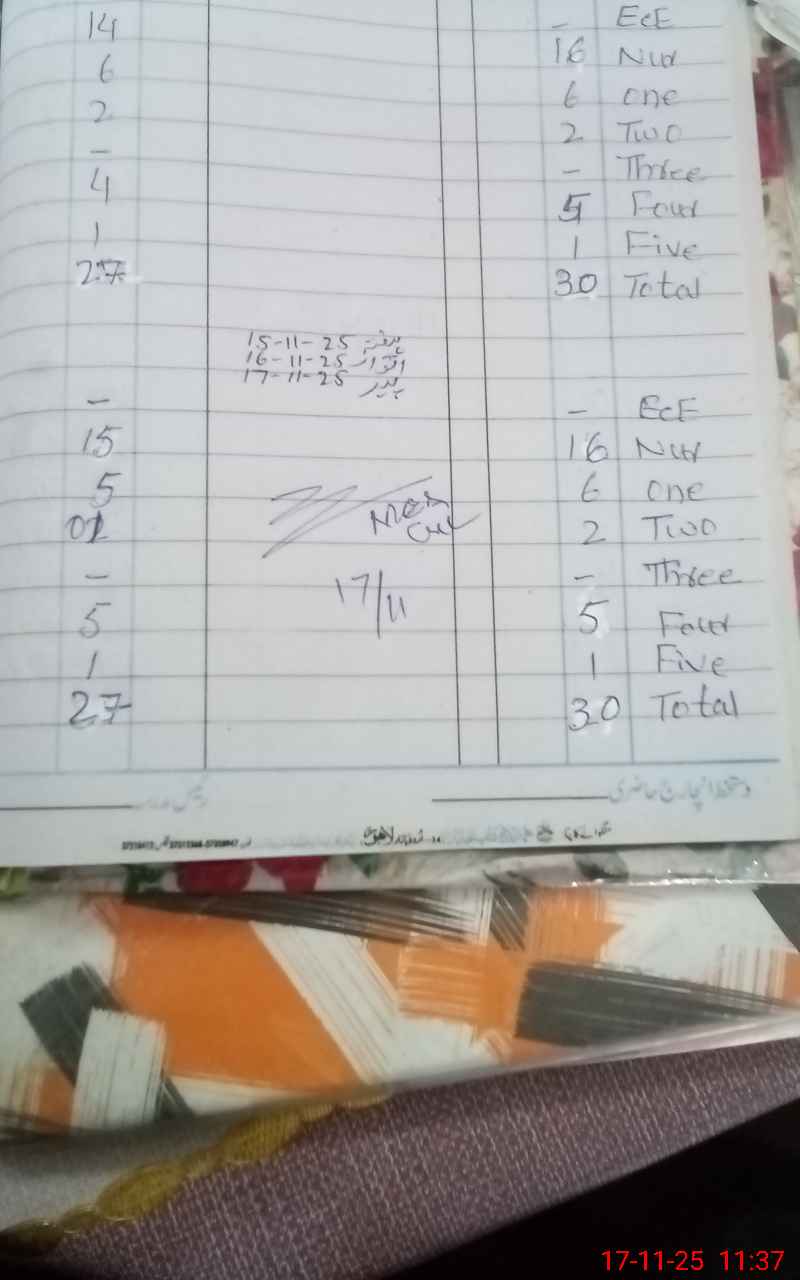 14 - EcE
6 16 Nur
2 6 One
- 2 Two
4 - Three
1 5 Four
27 1 Five
30 Total
15-11-25 ہفتہ
16-11-25 اتوار
17-11-25 پیر
- - EcE
15 16 Nur
5 6 One
01 2 Two
- - Three
5 5 Four
1 1 Five
27 30 Total
17/11
دستخط انچارج حاضری
17-11-25 11:37